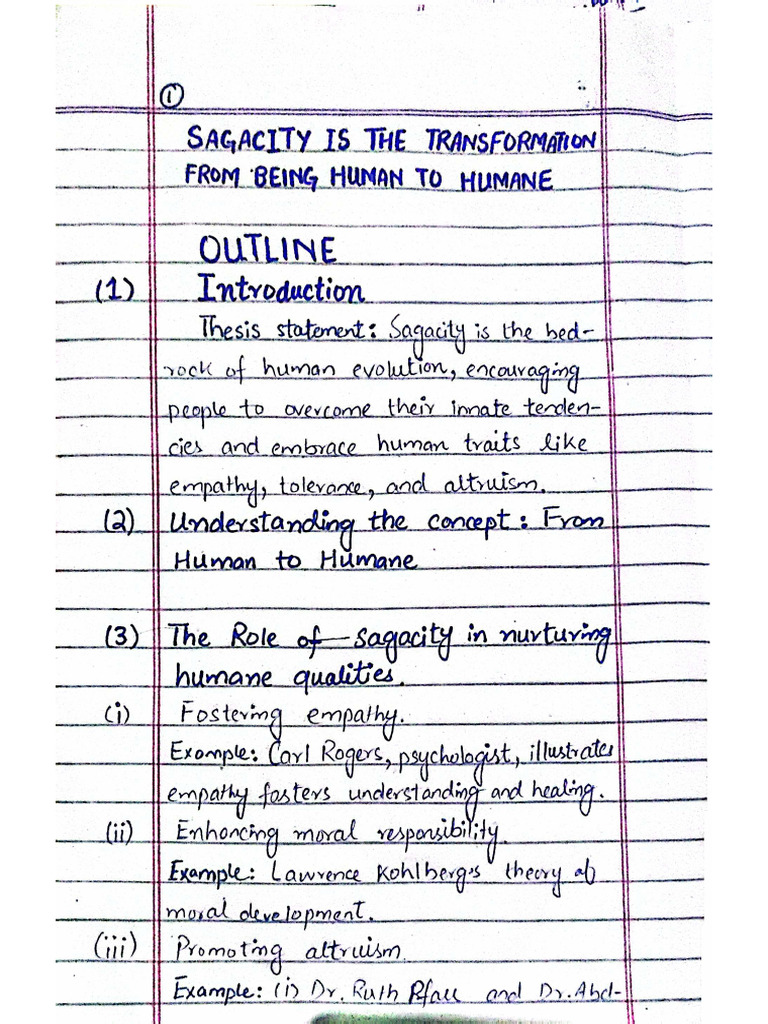 ①
SAGACITY IS THE TRANSFORMATION
FROM BEING HUMAN TO HUMANE
OUTLINE
(1) Introduction
Thesis statement: Sagacity is the bed-
rock of human evolution, encouraging
people to overcome their innate tenden-
cies and embrace human traits like
empathy, tolerance, and altruism.
(2) Understanding the concept: From
Human to Humane
(3) The Role of sagacity in nurturing
humane qualities.
(i) Fostering empathy.
Example: Carl Rogers, psychologist, illustrates
empathy fosters understanding and healing.
(ii) Enhancing moral responsibility.
Example: Lawrence Kohlberg's theory of
moral development.
(iii) Promoting altruism.
Example: (i) Dr. Ruth Pfau and Dr. Abd-